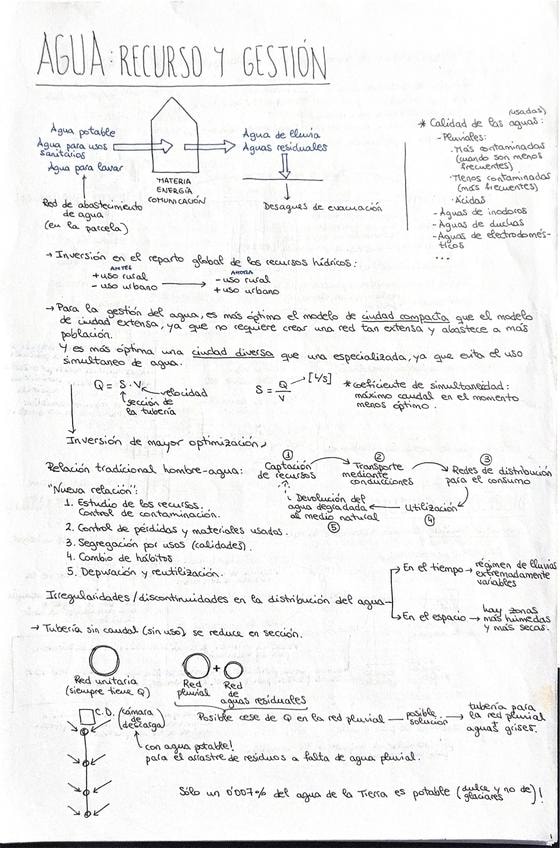 AGUA: RECURSO Y GESTIÓN
Agua potable
Agua para usos
sanitarios
Agua para lavar
Red de abastecimiento
de agua
(en la parcela)
MATERIA
ENERGÍA
COMUNICACIÓN
Agua de lluvia
Aguas residuales
Desagües de evacuación
(usadas)
* Calidad de las aguas:
- Pluviales:
· Más contaminadas
(cuando son menos
frecuentes)
· Menos contaminadas
(más frecuentes)
· Ácidas
- Aguas de inodoros
- Aguas de duchas
- Aguas de electrodomés-
ticos
...
→ Inversión en el reparto global de los recursos hídricos:
ANTES
+ uso rural
- uso urbano
AHORA
- uso rural
+ uso urbano
→ Para la gestión del agua, es más óptimo el modelo de ciudad compacta que el modelo
de ciudad extensa, ya que no requiere crear una red tan extensa y abastece a más
población.
Y es más óptima una ciudad diversa que una especializada, ya que evita el uso
simultaneo de agua.
Q = S · V
velocidad
sección de
la tubería
S = Q/V → [l/s]
* coeficiente de simultaneidad:
máximo caudal en el momento
menos óptimo.
Inversión de mayor optimización
Relación tradicional hombre-agua:
① Captación
de recursos
② Transporte
mediante
conducciones
③ Redes de distribución
para el consumo
④ Utilización
Devolución del
agua degradada
al medio natural
⑤
"Nueva relación":
1. Estudio de los recursos.
Control de contaminación.
2. Control de pérdidas y materiales usados.
3. Segregación por usos (calidades).
4. Cambio de hábitos
5. Depuración y reutilización.
Irregularidades/discontinuidades en la distribución del agua
En el tiempo → régimen de lluvias
extremadamente
variables
En el espacio → hay zonas
más húmedas
y más secas.
→ Tubería sin caudal (sin uso) se reduce en sección.
Red unitaria
(siempre tiene Q)
+
Red
pluvial
Red
de
aguas residuales
Posible cese de Q en la red pluvial — posible
solución → tubería para
la red pluvial
+
aguas grises.
C.D. (cámara
de
descarga)
con agua potable!
para el arrastre de residuos a falta de agua pluvial.
Sólo un 0'007% del agua de la Tierra es potable (dulce y no de
glaciares)!